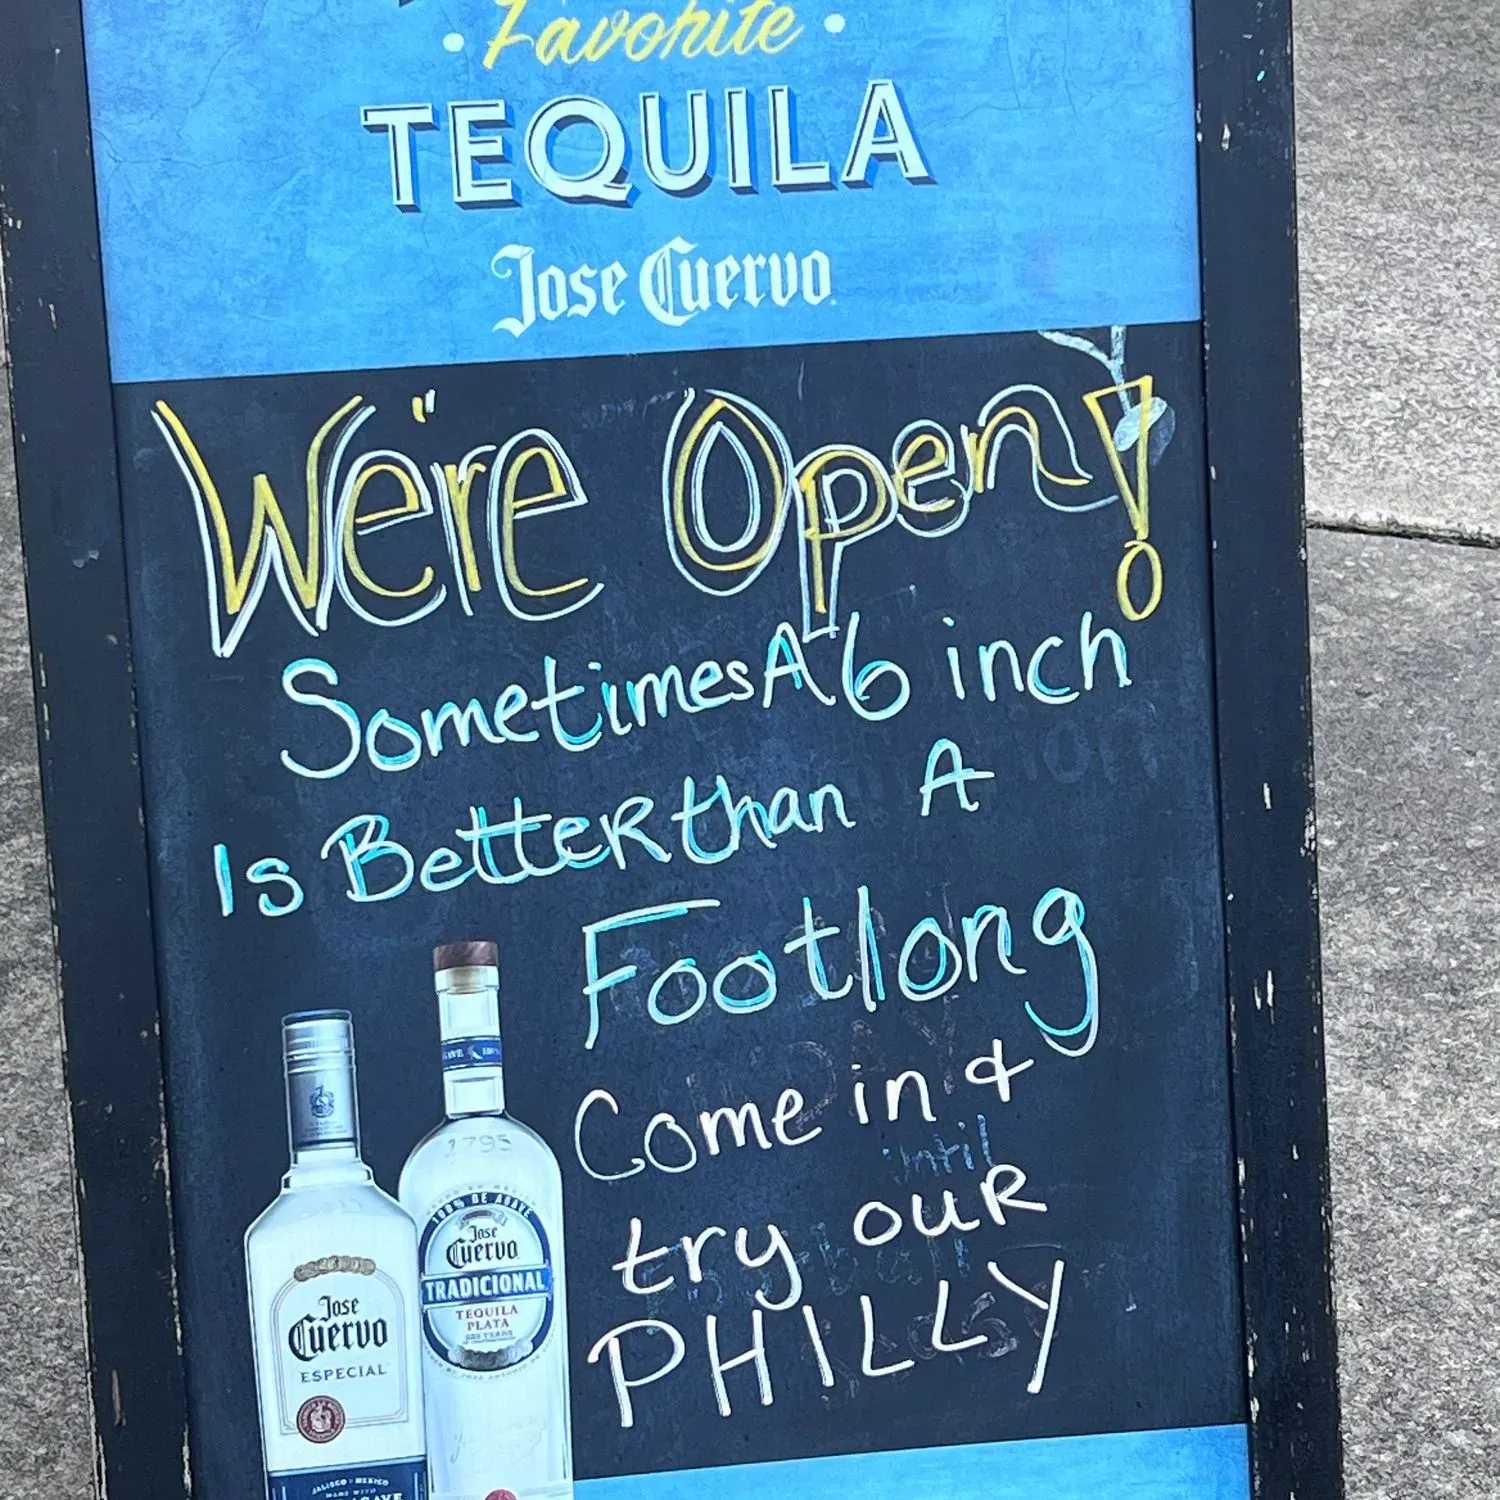 Favorite
TEQUILA
Jose Cuervo
We're Open!
Sometimes A 6 inch
Is Better than A
Footlong
Come in &
try our
PHILLY
1795
100% DE AGAVE
Jose
Cuervo
TRADICIONAL
TEQUILA
PLATA
Jose
Cuervo
ESPECIAL
JALISCO MEXICO
MADE WITH
AGAVE